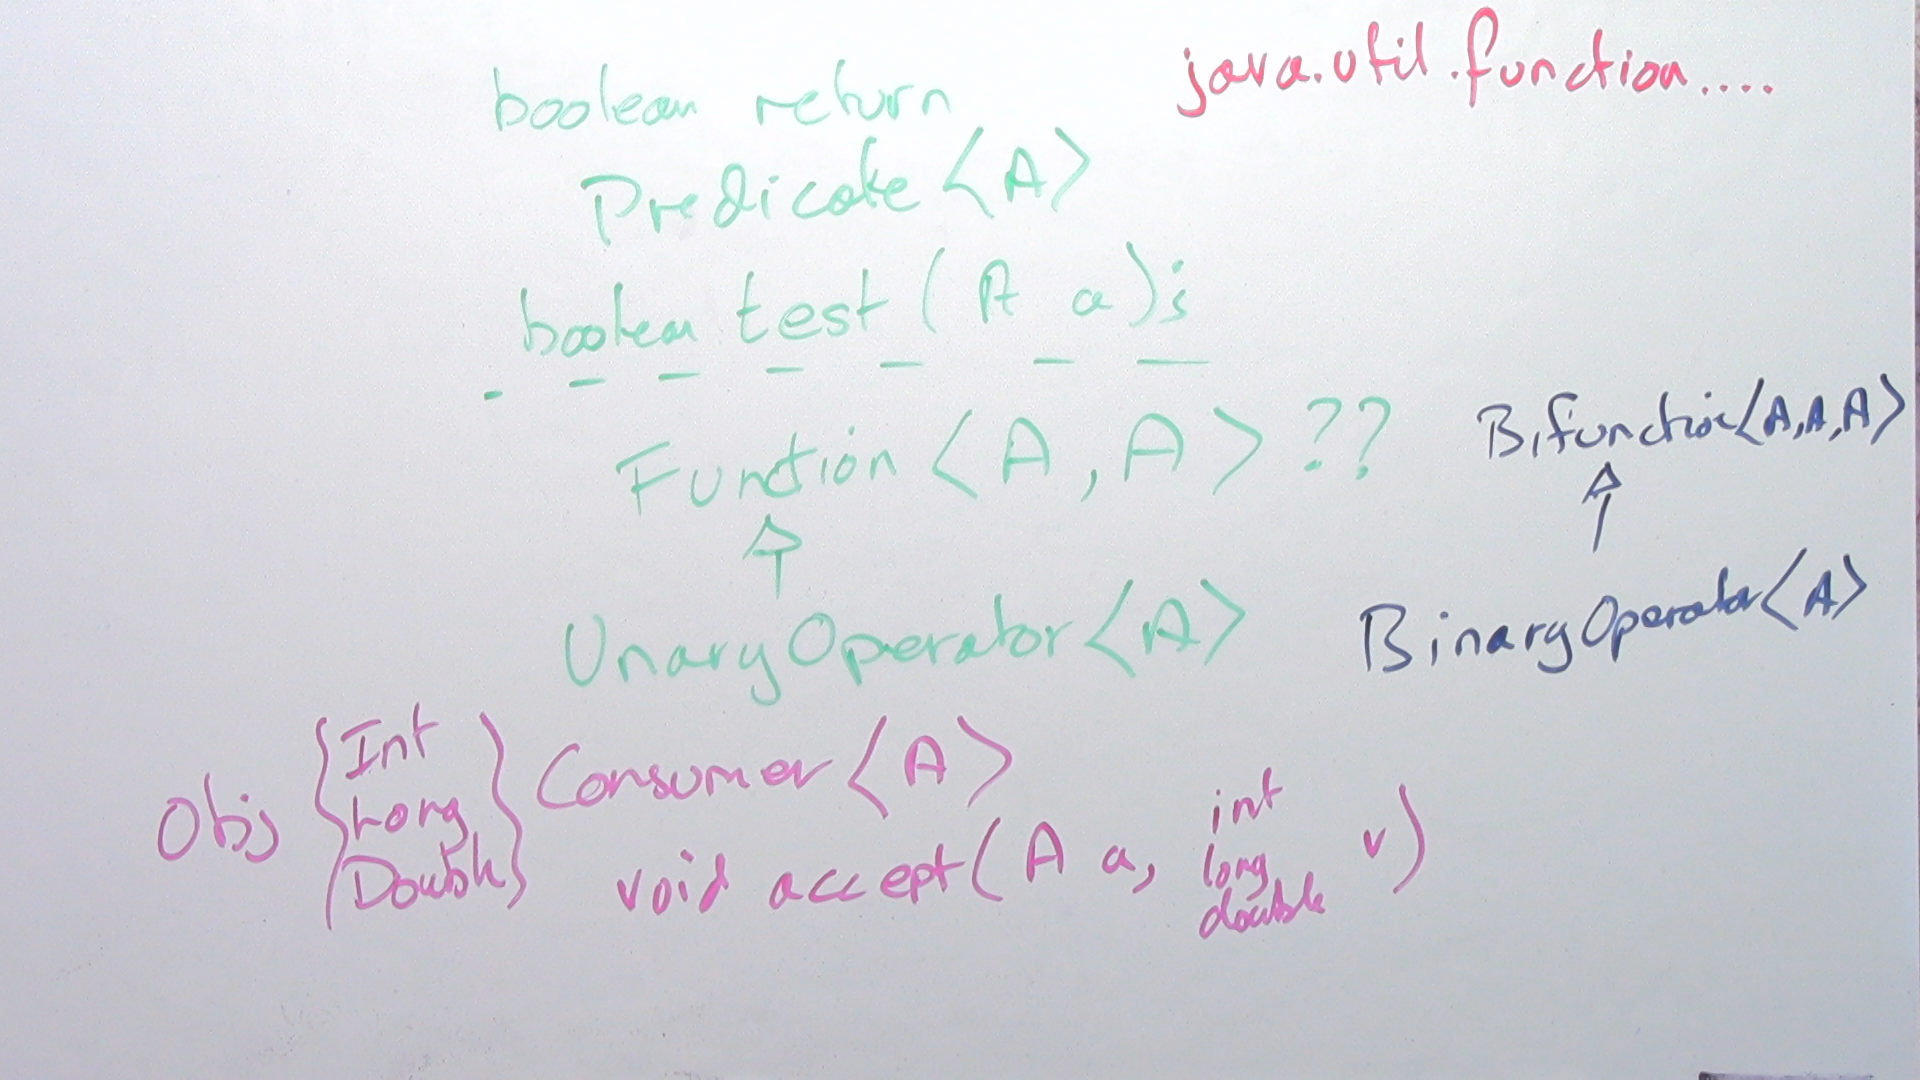 java.util.function....
boolean return
Predicate <A>
boolean test ( A a );
Function < A , A > ??
Bifunction<A,A,A>
UnaryOperator <A>
BinaryOperator <A>
Obj { Int Long Double } Consumer <A>
void accept( A a, int long double v )